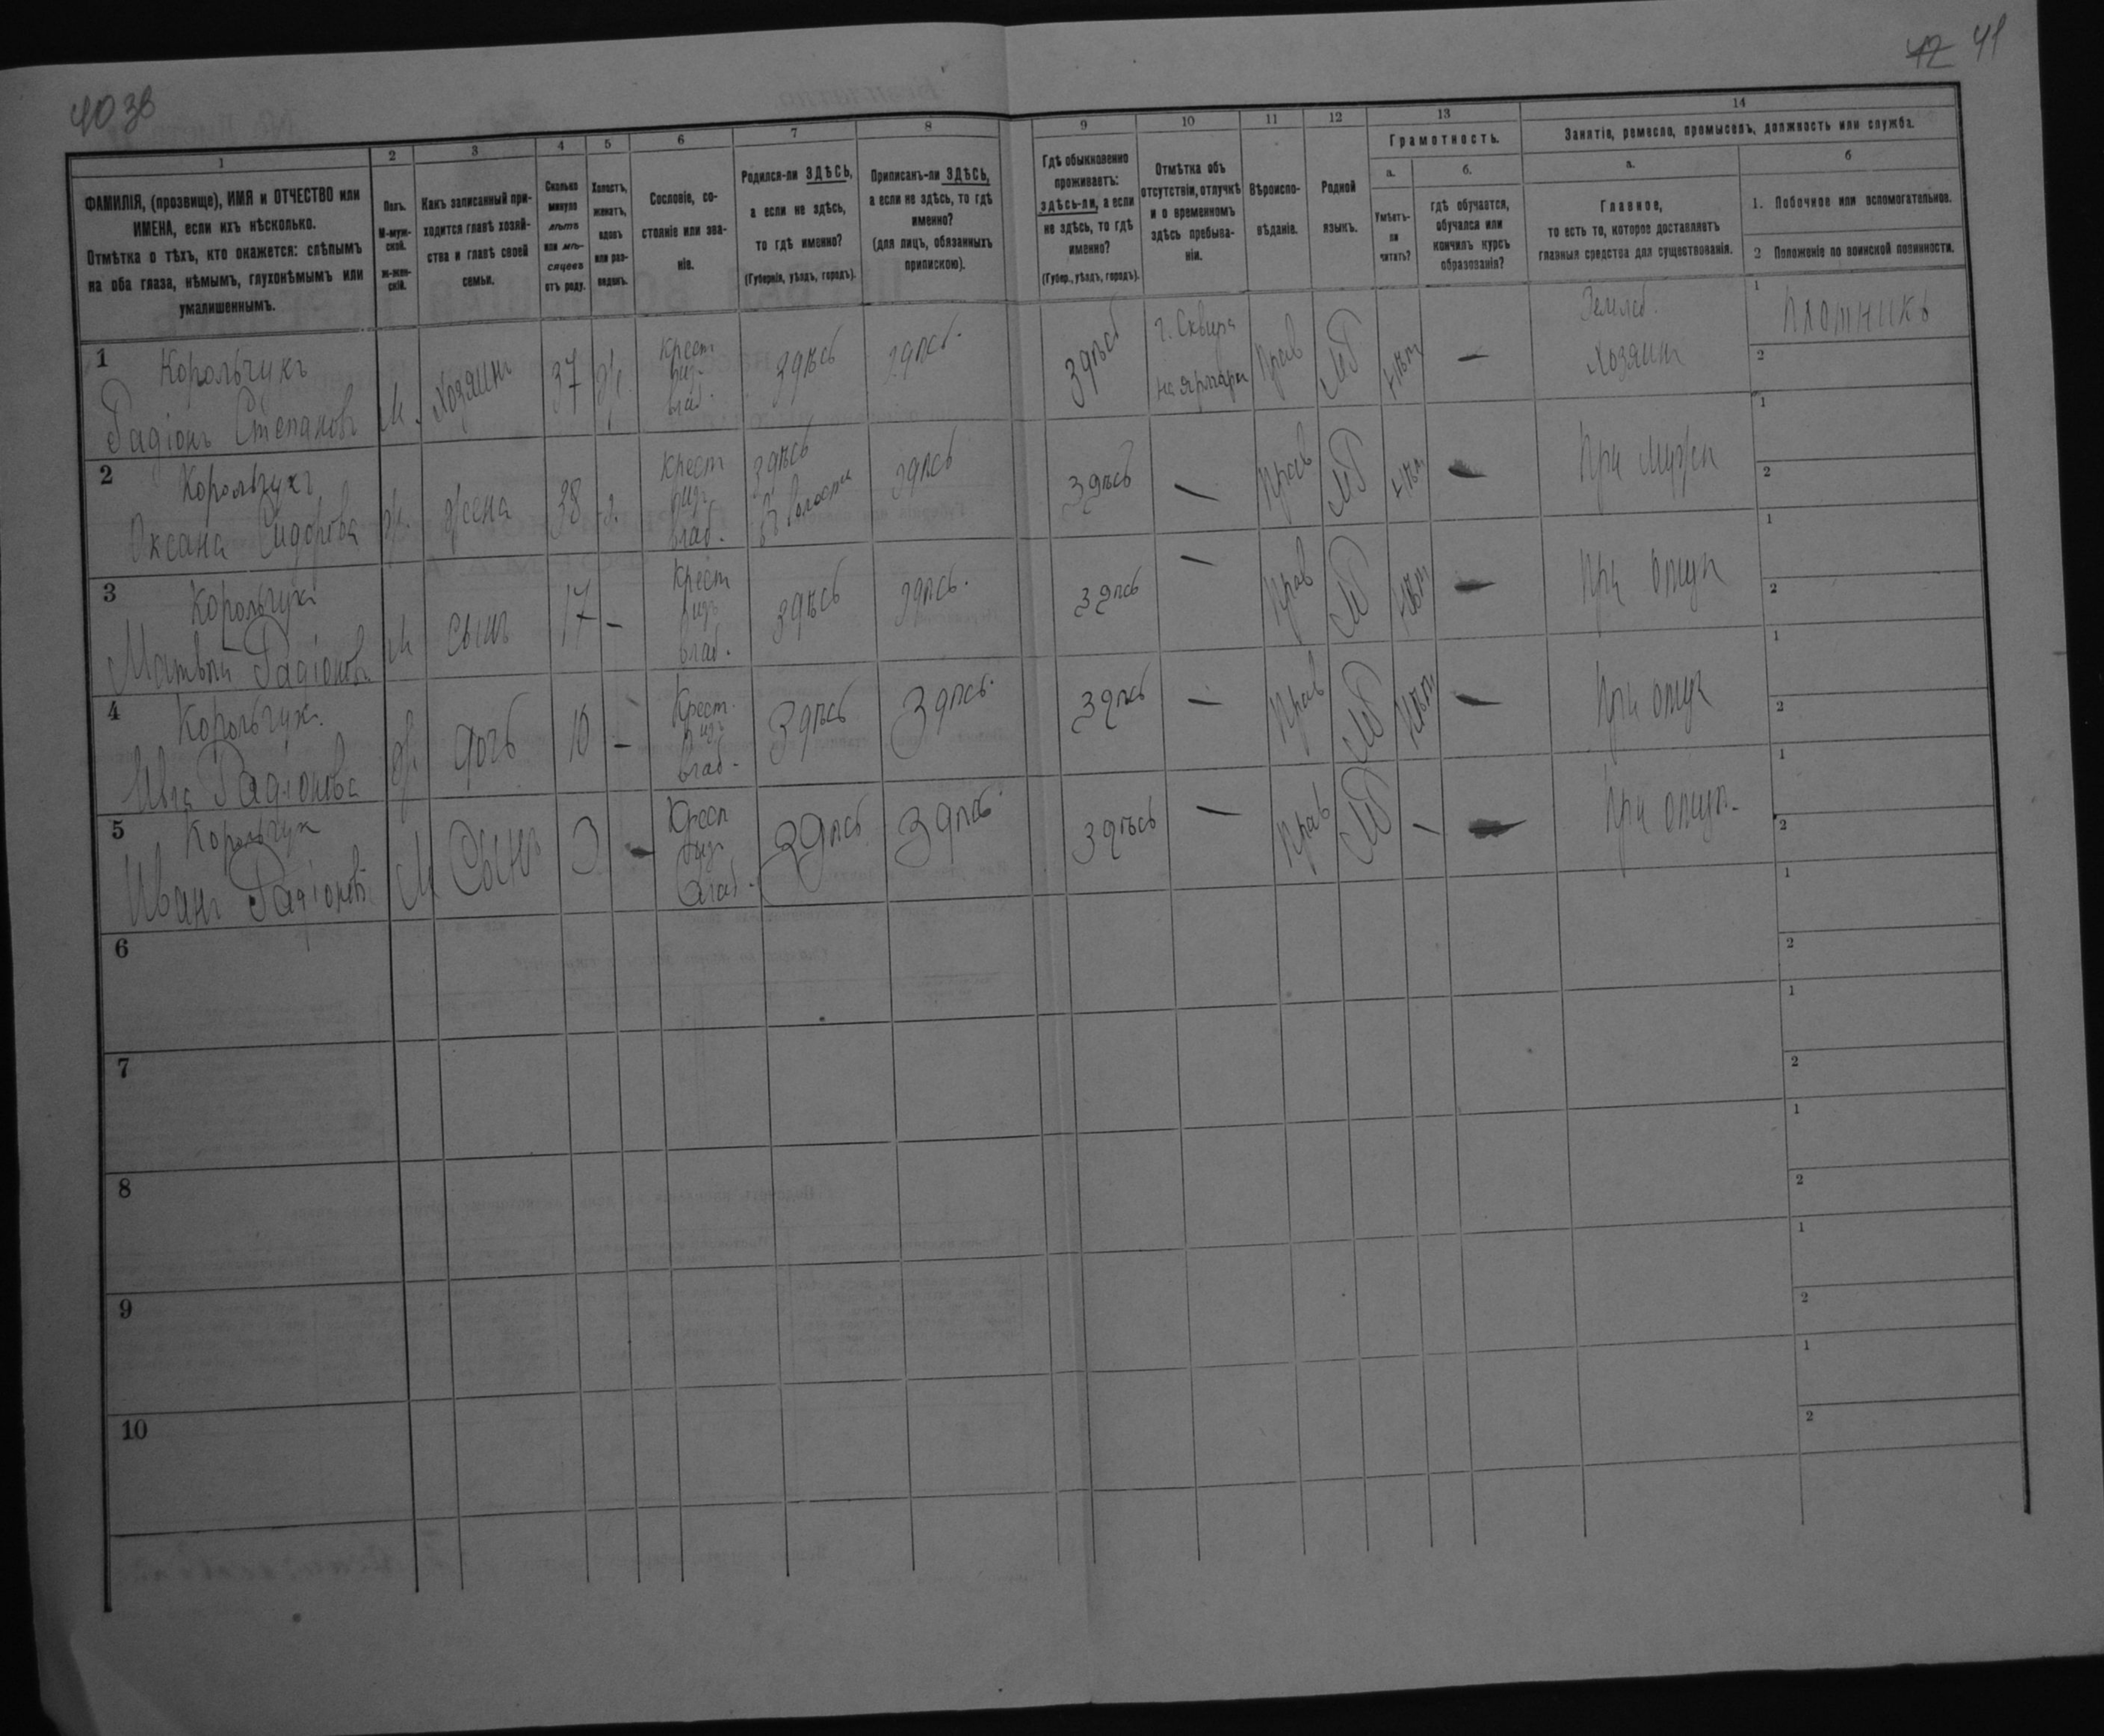 42 41
1
2
3
4
5
6
7
8
9
10
11
12
13
14
ФАМИЛІЯ, (прозвище), ИМЯ и ОТЧЕСТВО или
ИМЕНА, если ихъ нѣсколько.
Отмѣтка о тѣхъ, кто окажется: слѣпымъ
на оба глаза, нѣмымъ, глухонѣмымъ или
умалишеннымъ.
Полъ.
М-муж-
ской.
ж-жен-
скій.
Какъ записанный при-
ходится главѣ хозяй-
ства и главѣ своей
семьи.
Сколько
минуло
лѣтъ
или мѣ-
сяцевъ
отъ роду.
Холостъ,
женатъ,
вдовъ
или раз-
веденъ.
Сословіе, со-
стояніе или зва-
ніе.
Родился-ли ЗДѢСЬ,
а если не здѣсь,
то гдѣ именно?
(Губернія, уѣздъ, городъ).
Приписанъ-ли ЗДѢСЬ,
а если не здѣсь, то гдѣ
именно?
(для лицъ, обязанныхъ
припискою).
Гдѣ обыкновенно
проживаетъ:
здѣсь-ли, а если
не здѣсь, то гдѣ
именно?
(Губер., уѣздъ, городъ).
Отмѣтка объ
отсутствіи, отлучкѣ
и о временномъ
здѣсь пребыва-
ніи.
Вѣроиспо-
вѣданіе.
Родной
языкъ.
Грамотность.
а.
Умѣетъ-
ли
читать?
б.
гдѣ обучается,
обучался или
кончилъ курсъ
образованія?
Занятіе, ремесло, промыселъ, должность или служба.
а.
Главное,
то есть то, которое доставляетъ
главныя средства для существованія.
б
1. Побочное или вспомогательное.
2 Положеніе по воинской повинности.
1
Корольчукъ
Радіонъ Степановъ
М.
хозяинъ
37
ж.
Крест
изъ
влад.
здѣсь
здѣсь.
здѣсь
г. Сквира
на ярмарки
Прав
МР
нѣт
—
Землед.
Хозяинъ
1 плотникъ
2
2
Корольчукъ
Оксана Сидорова
ж.
жена
38
з.
Крест
изъ
влад.
здѣсь
въ волости
здѣсь
здѣсь
—
Прав
МР
нѣт
—
При мужѣ
1
2
3
Корольчукъ
Матвѣй Радіоновъ
М
сынъ
17
-
Крест
изъ
влад.
здѣсь
здѣсь.
здѣсь
—
Прав
МР
нѣт
—
При отцѣ
1
2
4
Корольчук.
Ивга Радіонова
ж
дочь
10
-
Крест.
изъ
влад.
здѣсь
здѣсь.
здѣсь
—
Прав
МР
нѣт
—
При отцѣ
1
2
5
Корольчук
Иванъ Радіоновъ
М
Сынъ
3
-
Крест
изъ
влад.
здѣсь
здѣсь
здѣсь
—
Прав
МР
—
—
При отцѣ.
1
2
6
1
2
7
1
2
8
1
2
9
1
2
10
1
2